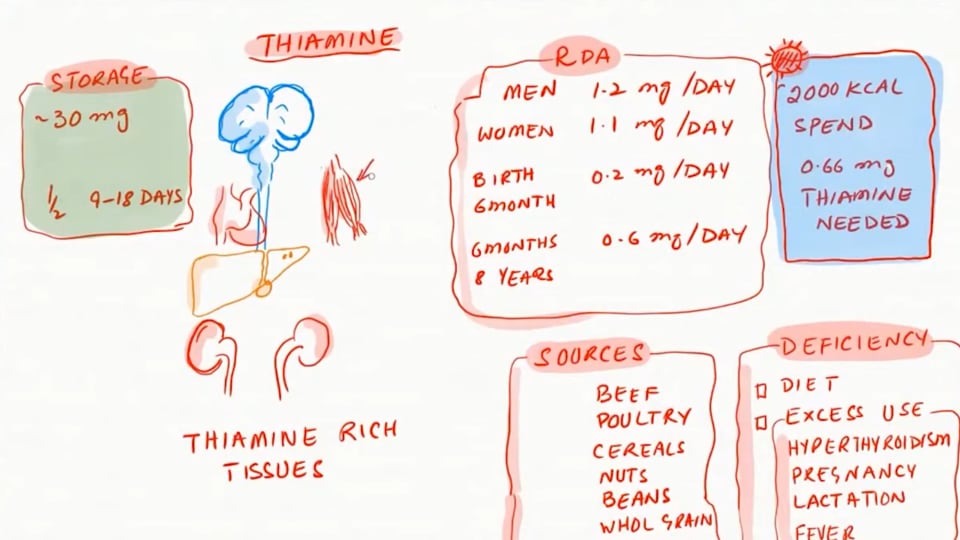 THIAMINE
STORAGE
~30 mg
1/2 9-18 DAYS
THIAMINE RICH
TISSUES
RDA
MEN 1.2 mg /DAY
WOMEN 1.1 mg /DAY
BIRTH 0.2 mg /DAY
6MONTH
6MONTHS 0.6 mg/DAY
8 YEARS
~2000 KCAL
SPEND
0.66 mg
THIAMINE
NEEDED
SOURCES
BEEF
POULTRY
CEREALS
NUTS
BEANS
WHOL GRAIN
DEFICIENCY
DIET
EXCESS USE
HYPERTHYROIDISM
PREGNANCY
LACTATION
FEVER